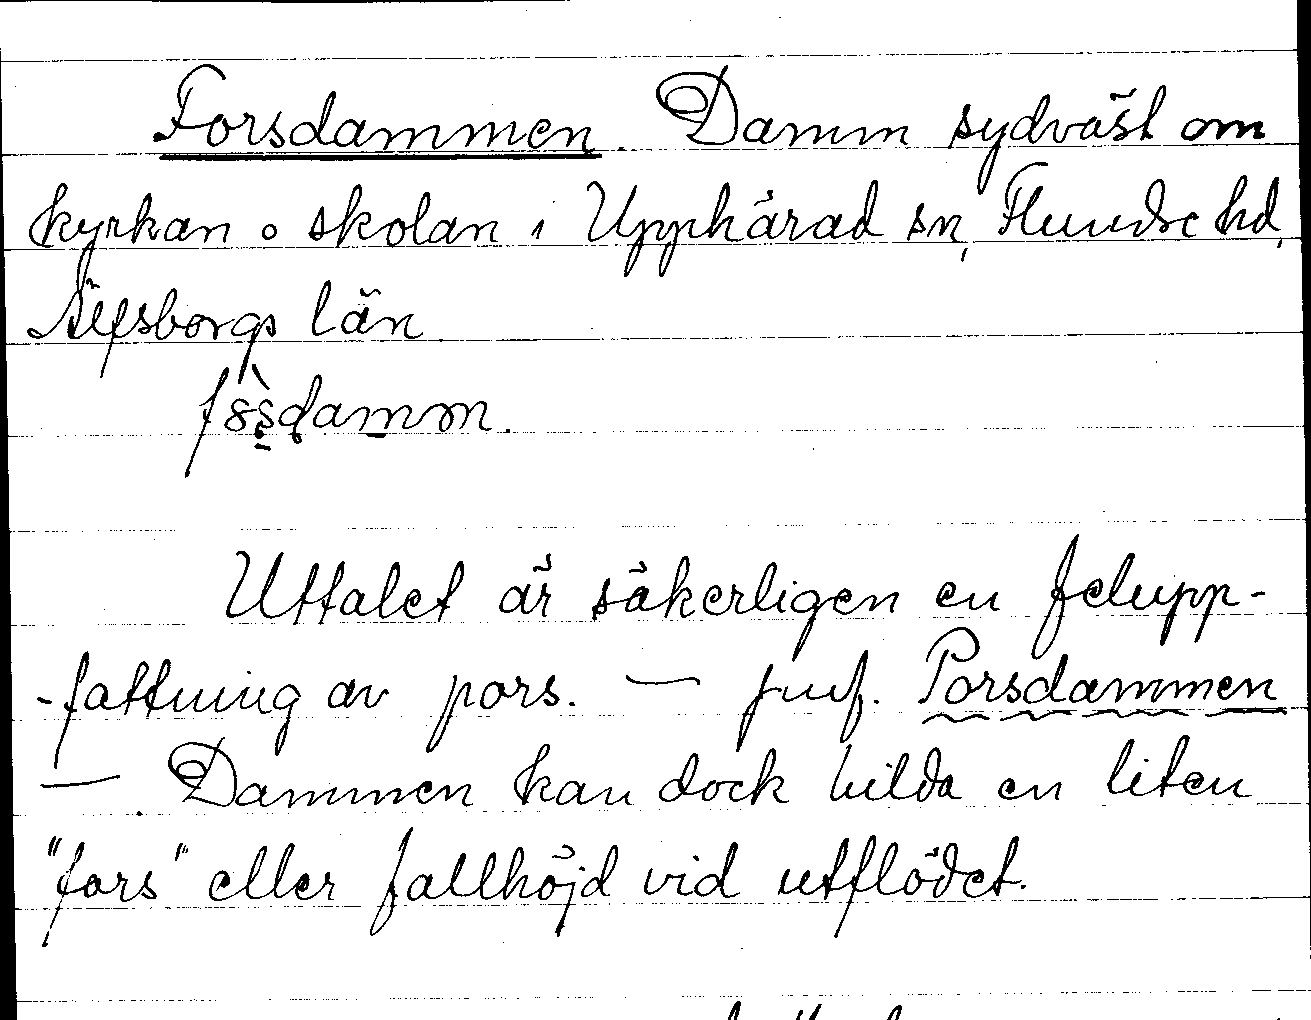 Forsdammen. Damm sydväst om
kyrkan o skolan i Upphärad sn, Flundre hd,
Älfsborgs län
Uttalet är säkerligen en felupp-
-fattning av pors. — jmf. Porsdammen
—. Dammen kan dock bilda en liten
"fors" eller fallhöjd vid utflödet.